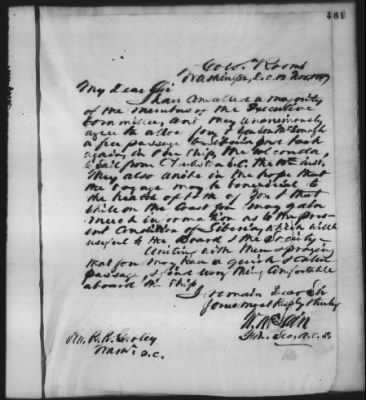 481
Colo. Rooms
Washington, D.C. 12 Nov.
My Dear Sir
I have consulted a majority
of the members of the Executive
Committee, and they unanimously
agree to allow you & Gen
a free passage to Liberia and back
again in Our Ship, the Golconda,
to sail from the inst.
They also unite in the hope that
the voyage may be beneficial to
the health of both of you & that
while on the Coast you may gain
much information as to the pres-
ent Condition of Liberia, which will be
useful to the Board & the Society—
Uniting with them & praying
that you may have a quick & safe
passage & find every thing comfortable
aboard the ship
I remain Dear Sir
Yours most Respectfully
Wm McLain
Fin. Sec. A.C.S.
Rev. R. R. Gurley
Washn D.C.